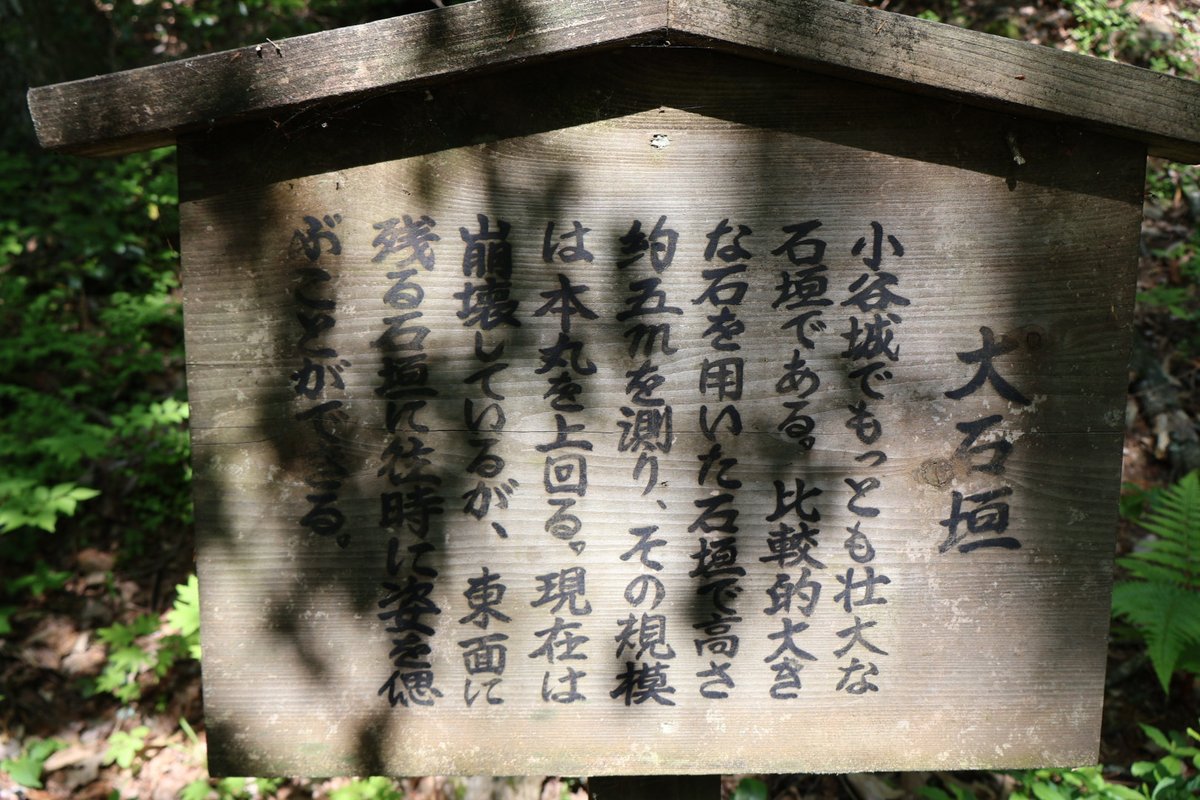 大石垣
小谷城でもっとも壮大な
石垣である。比較的大き
な石を用いた石垣で高さ
約五mを測り、その規模
は本丸を上回る。現在は
崩壊しているが、東面に
残る石垣に往時に姿を偲
ぶことができる。